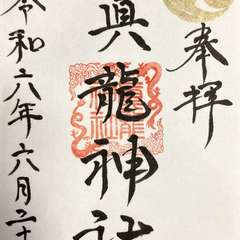 奉拝
眞龍神社
令和六年六月二十